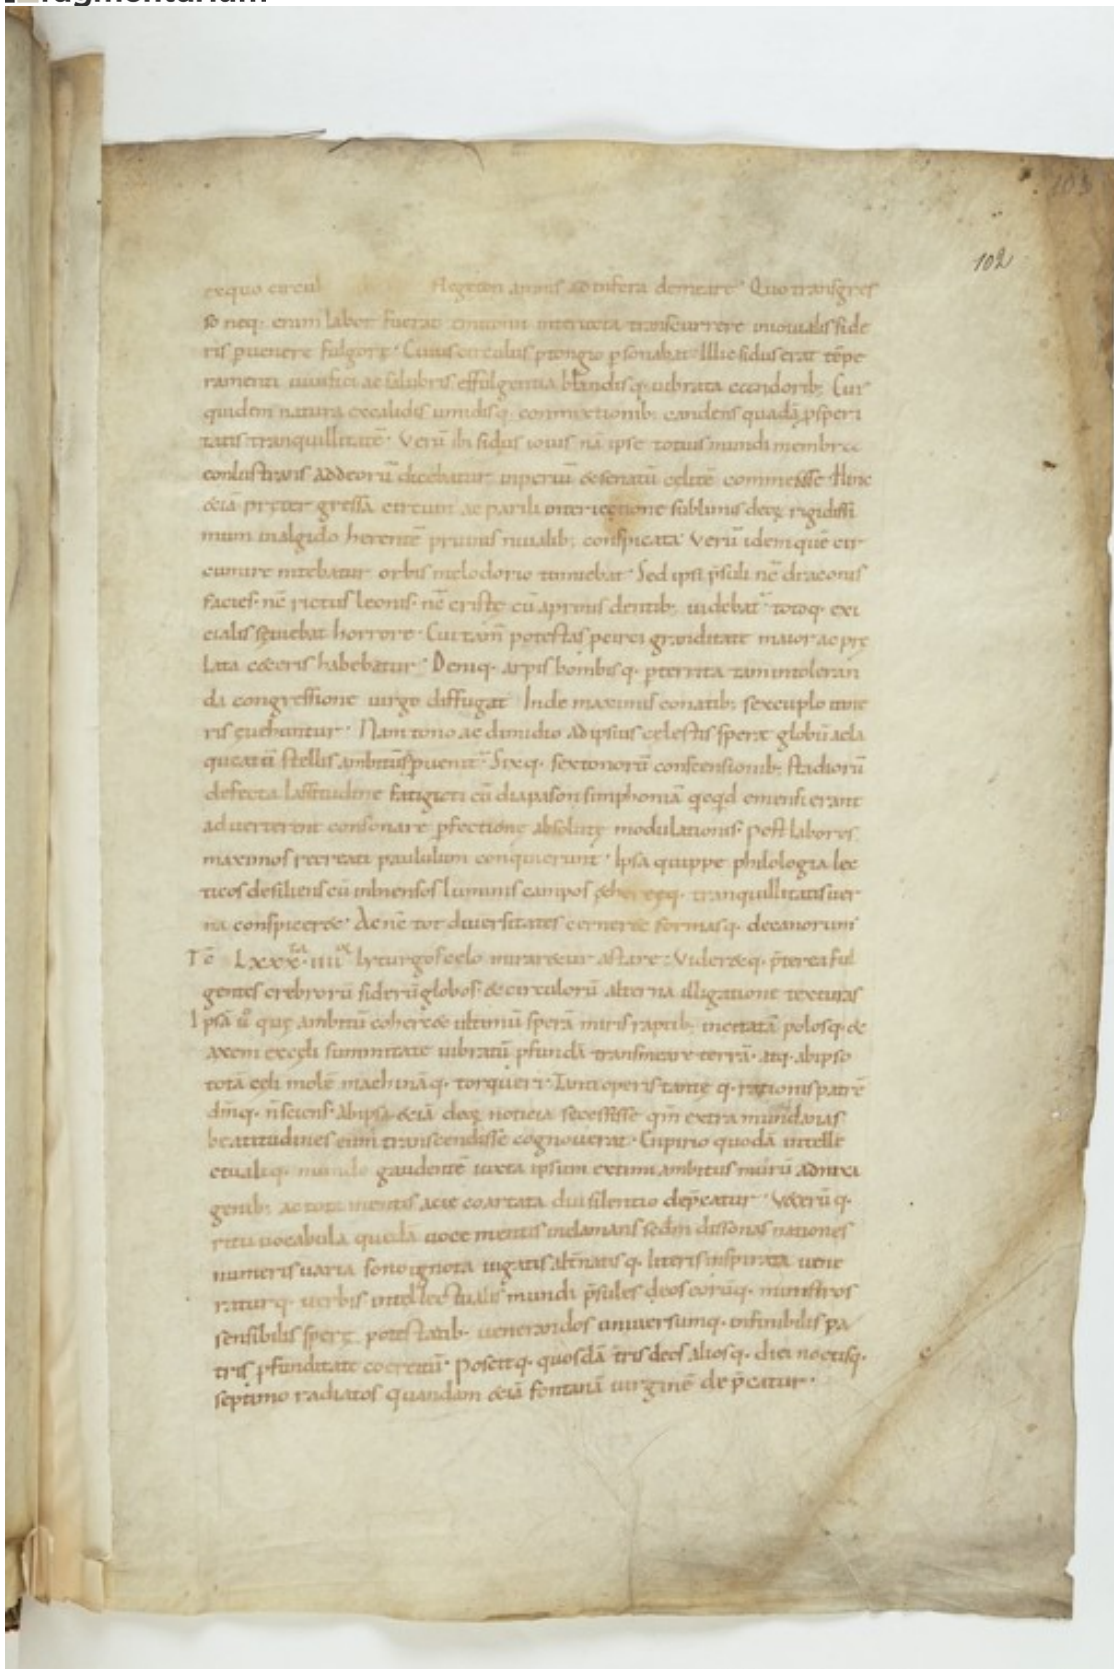 fragmentarium
102
exquo circul flegeton amnis ad infera demeare· Quo transgres
so neq· enim labor fuerat emitonii interiecta transcurrere iniouialis side
ris puenere fulgorē· Cuius circulus ptongio psonabat Illic sidus erat tēpe
ramenti uiuifici ac salubris effulgentia blandisq· uibrata candorib; Cui
quidem natura excalidis umidisq· conmixtionib; candens quadā psperi
tatis tranquillitatē· Verū ibi sidus iouis nā ipse totius mundi membra
conlustrans addeorū dicebatur inperiū & senatū celitē commeasse Hinc
&iā preter gressā circum ac parili interiectione sublimis decę rigidissi
mum inalgido herentē pruinis niualib; conspicata Verū idem quē cir
cumire nitebatur orbis melo dorio tinniebat· Sed ipsi p̄suli nc̄ draconis
facies· nc̄ rictus leonis· nc̄ cristę cū aprinis dentib; uidebat totoq· exi
cialis sęuiebat horrore· Cui tam̄ potestas
lata c&eris habebatur· Deniq· arpis bombisq· pterrita tam intoleran
da congressione uirgo diffugat Inde maximis conatib; sexcuplo itine
ris euehuntur· Nam tono ac dimidio ad ipsius cęlestis sperę globū acla
queatū stellis ambitūs puenit· Sixq· sextonorū conscensionib; stadiorū
defecta lassitudine fatigati cū diapason simphoniā qcqd emensi erant
aduerterent consonare pfectionę absolutę modulationis· Post labores
maximos recreati paululum conquierunt· Ipsa quippe philologia lec
ticos desiliens cū inmensos luminis campos &hereęq· tranquillitatis uer
na conspicer&· Ac nc̄ tot diuersitates cerner& formasq· decanorum
Tc̄ LXXX·IIII lyturgos celo mirar&ur astare· Vider&q· p̄terea ful
gentes crebrorū siderū globos & circulorū alterna illigatione texturas
Ipsā ū quę ambitū coherc& ultimū sperā miris raptib; incitatā polosq· &
axem ex cęli summitate uibratū pfundā transmeare terrā· atq· abipso
totā cęli molē machināq· torqueri· Tanti operis tantę q· rationis patrē
dm̄q· n̄ sciens· abipsa &iā decę noticia secessisse qm̄ extra mundanas
beatitudines eum transcendisse cognouerat· Enpirio quodā intelle
ctualiq· mundo gaudentē iuxta ipsum extimi ambitus murū adnixi
genib; ac tota mentis acie coartata diu silentio dep̄catur· V&erū q·
ritu uocabula quedā uoce mentis inclamans sedm̄ dissonas nationes
numeris uaria sono ignota iugatis alt̄natis q· literis inspirata uene
raturq· uerbis intellectualis mundi p̄sules deos eorūq· ministros
sensibilis sperę potestatib· uenerandos uniuersumq· infinibilis pa
tris pfunditate coercitū· Poscitq· quosdā tris deos aliosq· diei noctisq·
septimo radiatos quandam &iā fontanā uirginē dep̄catur·